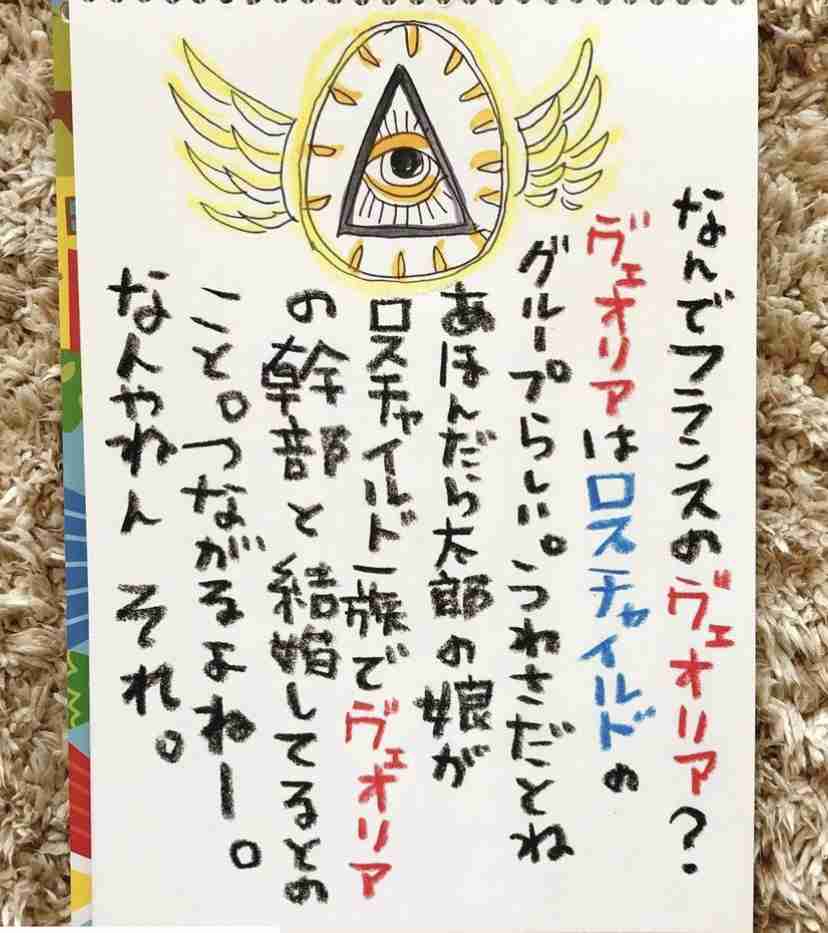 なんでフランスのヴェオリア?
ヴェオリアはロスチャイルドの
グループらしい。うわさだとね
あほんだら太郎の娘が
ロスチャイルド一族でヴェオリア
の幹部と結婚してるとの
こと。つながるよねー。
なんやねん それ。